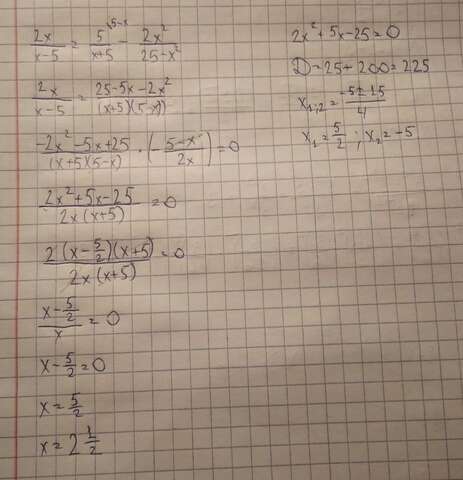 2x/(x-5) = 5^(5-x)/(x+5) - 2x²/(25-x²)
2x/(x-5) = (25-5x-2x²)/((x+5)(5-x))
(-2x²-5x+25)/((x+5)(5-x)) · (-(5-x)/(2x)) = 0
(2x²+5x-25)/(2x(x+5)) = 0
2(x-5/2)(x+5)/(2x(x+5)) = 0
(x-5/2)/x = 0
x-5/2=0
x=5/2
x=2 1/2
2x²+5x-25=0
D=25+200=225
x₁,₂=(-5±15)/4
x₁=5/2; x₂=-5